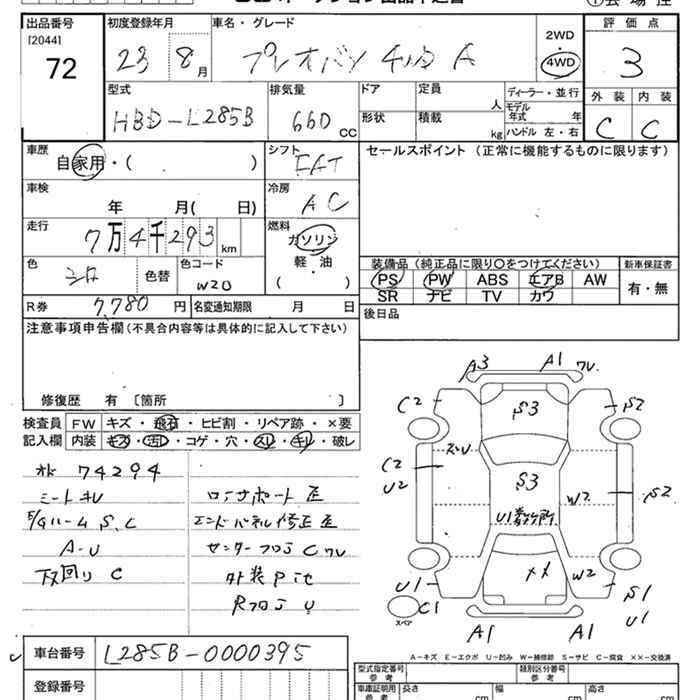 出品番号
[2044]
72
初度登録年月
23 8月
車名・グレード
プレオバン 4WD A
2WD
4WD
評価点
3
外装 内装
C C
型式
HBD-L285B
排気量
660 CC
ドア
定員
人
形状
積載
kg
ディーラー・並行
モデル年式 年
ハンドル 左・右
車歴
自家用・( )
シフト
FAT
セールスポイント (正常に機能するものに限ります)
車検
年 月( 日)
冷房
AC
走行
7万4千293km
燃料
ガソリン
軽・油
( )
色
シロ
色替
色コード
W20
装備品 (純正品に限り○をつけてください)
新車保証書
PS PW ABS エアB AW
有・無
SR ナビ TV カワ
R券
7,780円
名変通知期限 月 日
後日品
注意事項申告欄 (不具合内容等は具体的に記入して下さい)
修復歴 有 〔箇所 〕
検査員
記入欄
FW キズ・飛石・ヒビ割・リペア跡・×要
内装 キズ・汚レ・コゲ・穴・スレ・キレ・破レ
74294
シートキレ
S, C
A-U
下回り C
コーナーサポート 歪
エンドパネル修正 歪
センターフロア C ワレ
外装 Pit
Rフロア U
A3
A1 ワレ
C2
S3
S2
C2
U2
S3
U1 数ヶ所
W2
S2
××
W2
U1
C1
スペア
S1
U1
A1
A1
A-キズ E-エクボ U-凹み W-補修跡 S-サビ C-腐食 ××-交換済
車台番号
L285B-0000395
登録番号
型式指定番号
参考
類別区分番号
参考
車庫証明用
参考
長さ
cm
幅
cm
高さ
cm